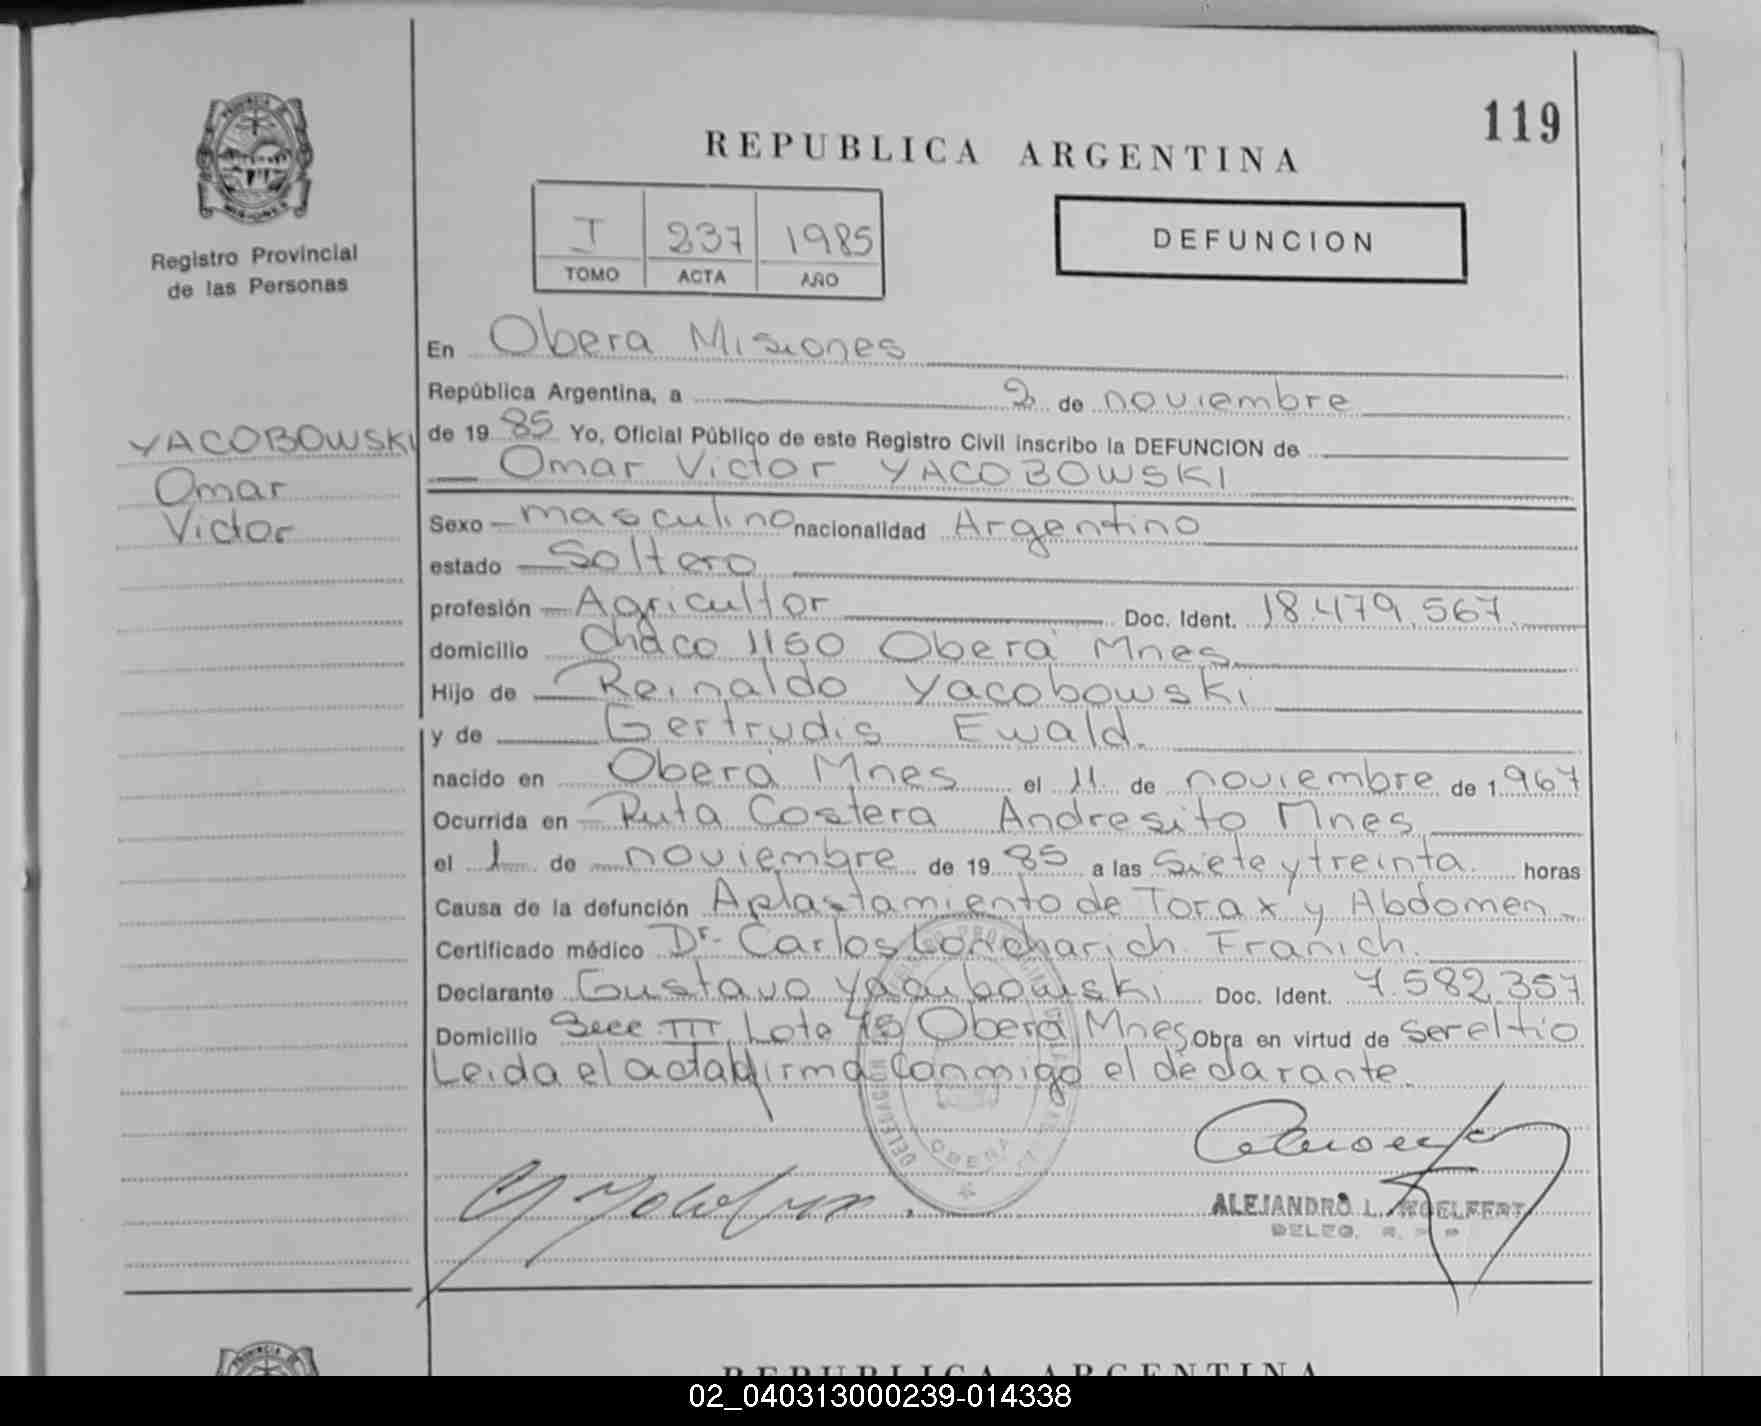 119
REPUBLICA ARGENTINA
I 237 1985
TOMO ACTA AÑO
DEFUNCION
Registro Provincial
de las Personas
YACOBOWSKI
Omar
Victor
En Obera Misiones
República Argentina, a 2 de noviembre
de 1985 Yo, Oficial Público de este Registro Civil inscribo la DEFUNCION de
Omar Victor YACOBOWSKI
Sexo masculino nacionalidad Argentino
estado Soltero
profesión Agricultor Doc. Ident. 18.479.567
domicilio Chaco 1150 Oberá Mnes
Hijo de Reinaldo Yacobowski
y de Gertrudis Ewald.
nacido en Oberá Mnes el 11 de noviembre de 1967
Ocurrida en Ruta Costera Andresito Mnes
el 1 de noviembre de 1985 a las Siete y treinta horas
Causa de la defunción Aplastamiento de Torax y Abdomen
Certificado médico Dr. Carlos Franich.
Declarante Gustavo Yacubowski Doc. Ident. 7.582.357
Domicilio Secc III Lote Oberá Mnes Obra en virtud de ser el tio
Leida el acta firma conmigo el declarante.
DELEGACION
OBERA
ALEJANDRO L.
DELEG.
REPUBLICA ARGENTINA
02_040313000239-014338